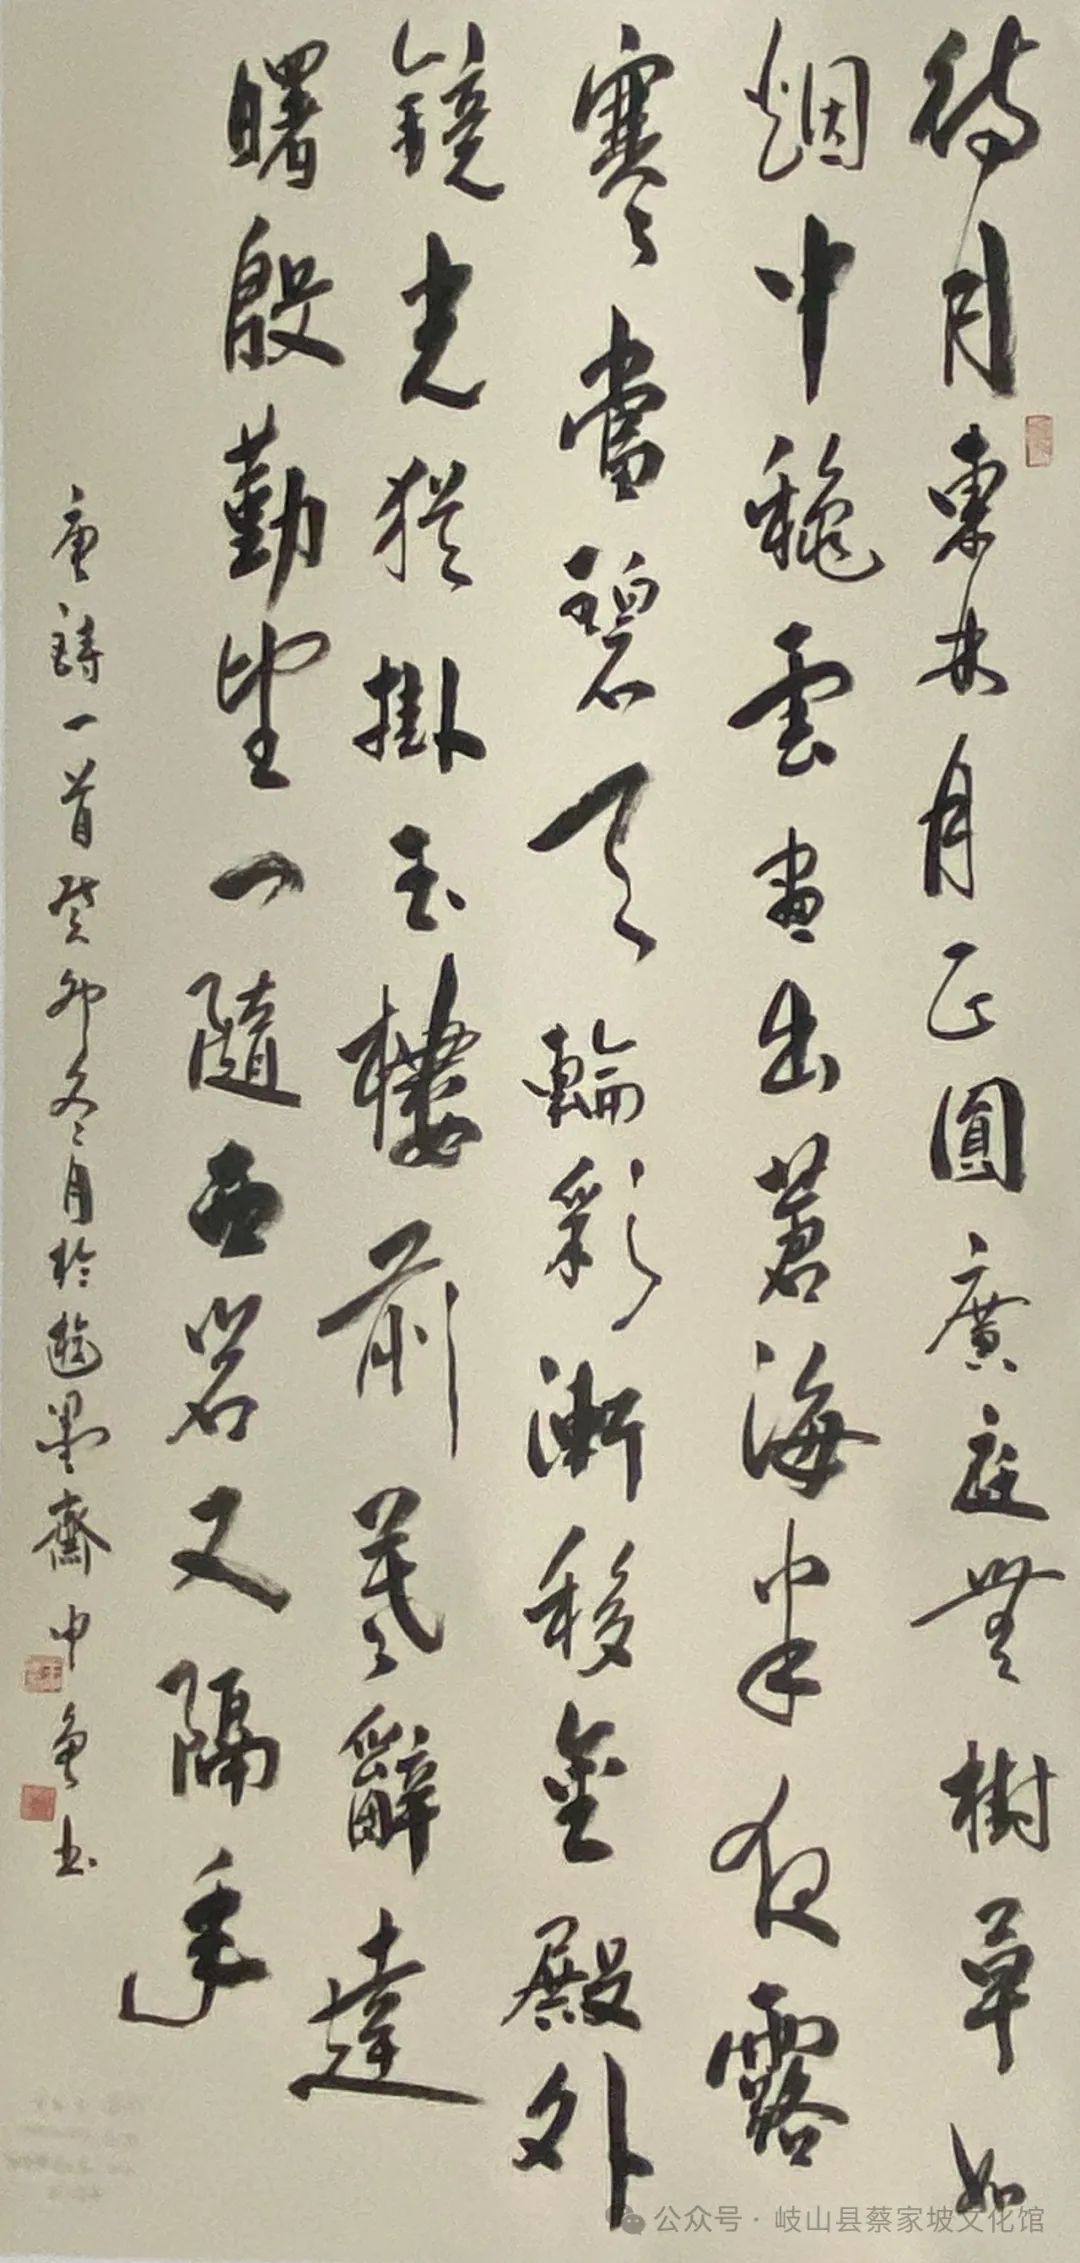 待月東林月正圓廣庭無樹草如
烟中穐雲盡出蒼海半夜露
寒當碧天輪彩漸移金殿外
鏡光猶掛玉樓前莫辭達
曙殷勤望一隨西岩又隔年
唐詩一首癸卯冬月於墨齋中书
公众号·岐山县蔡家坡文化馆